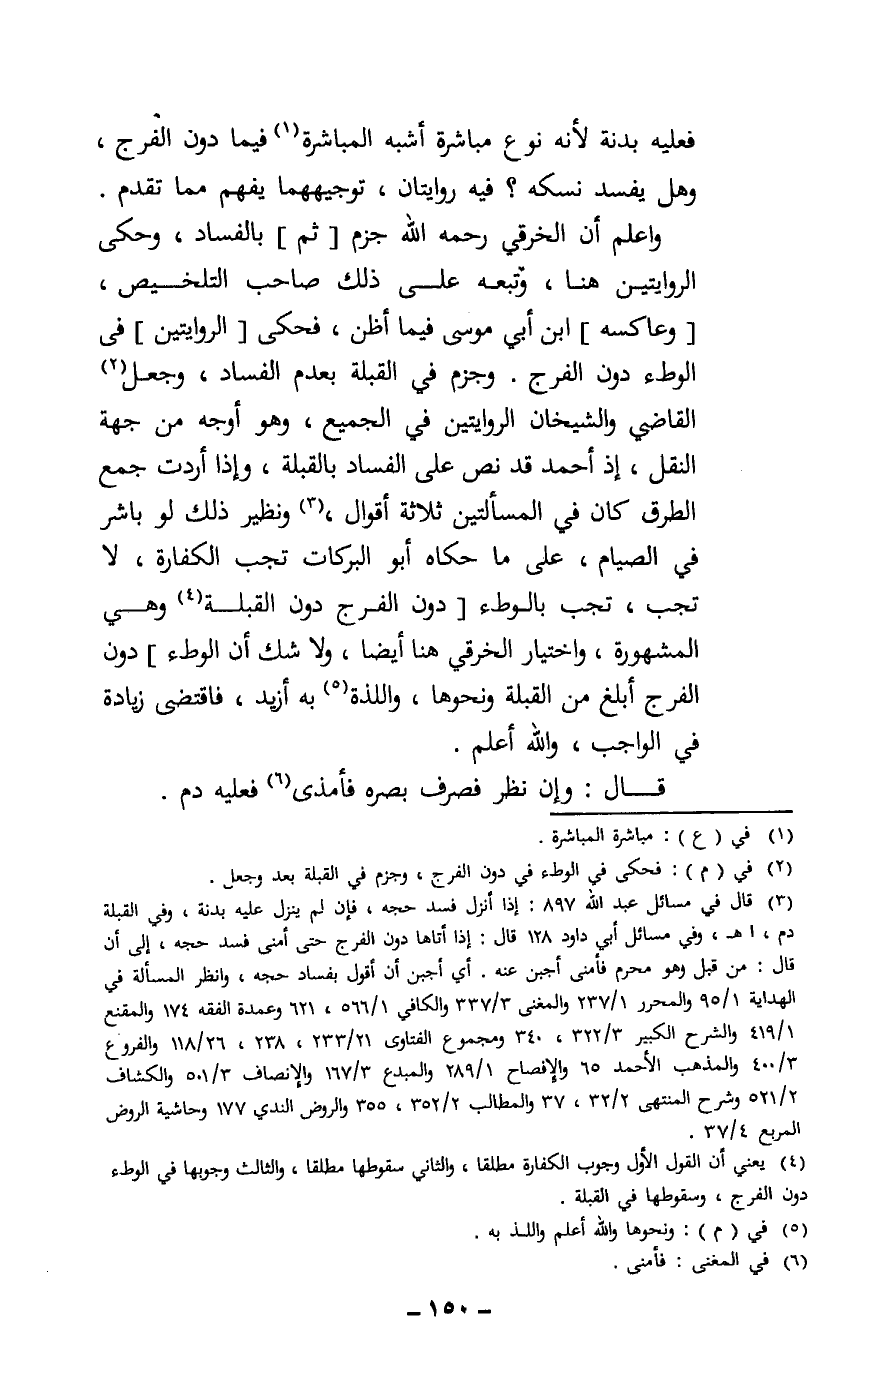 فعليه بدنة لأنه نوع مباشرة أشبه المباشرة(١) فيما دون الفرج ،
وهل يفسد نسكه ؟ فيه روايتان ، توجيههما يفهم مما تقدم .
واعلم أن الخرقي رحمه الله جزم [ ثم ] بالفساد ، وحكى
الروايتين هنا ، وتبعه على ذلك صاحب التلخيص ،
[ وعاكسه ] ابن أبي موسى فيما أظن ، فحكى [ الروايتين ] فى
الوطء دون الفرج . وجزم في القبلة بعدم الفساد ، وجعل(٢)
القاضي والشيخان الروايتين في الجميع ، وهو أوجه من جهة
النقل ، إذ أحمد قد نص على الفساد بالقبلة ، وإذا أردت جمع
الطرق كان في المسألتين ثلاثة أقوال ،(٣) ونظير ذلك لو باشر
في الصيام ، على ما حكاه أبو البركات تجب الكفارة ، لا
تجب ، تجب بالوطء [ دون الفرج دون القبلة(٤) وهي
المشهورة ، واختيار الخرقي هنا أيضا ، ولا شك أن الوطء ] دون
الفرج أبلغ من القبلة ونحوها ، واللذة(٥) به أزيد ، فاقتضى زيادة
في الواجب ، والله أعلم .
قـــال : وإن نظر فصرف بصره فأمذى(٦) فعليه دم .
(١) في ( ع ) : مباشرة المباشرة .
(٢) في ( م ) : فحكى في الوطء في دون الفرج ، وجزم في القبلة بعد وجعل .
(٣) قال في مسائل عبد الله ٨٩٧ : إذا أنزل فسد حجه ، فإن لم ينزل عليه بدنة ، وفي القبلة
دم ، ا هـ ، وفي مسائل أبي داود ١٢٨ قال : إذا أتاها دون الفرج حتى أمنى فسد حجه ، إلى أن
قال : من قبل وهو محرم فأمنى أجبن عنه . أي أجبن أن أقول بفساد حجه ، وانظر المسألة في
الهداية ٩٥/١ والمحرر ٢٣٧/١ والمغنى ٣٣٧/٣ والكافي ٥٦٦/١ ، ٦٢١ وعمدة الفقه ١٧٤ والمقنع
٤١٩/١ والشرح الكبير ٣٢٢/٣ ، ٣٤٠ ومجموع الفتاوى ٢٣٣/٢١ ، ٢٣٨ ، ١١٨/٢٦ والفروع
٤٠٠/٣ والمذهب الأحمد ٦٥ والإفصاح ٢٨٩/١ والمبدع ١٦٧/٣ والإنصاف ٥٠١/٣ والكشاف
٥٢١/٢ وشرح المنتهى ٣٢/٢ ، ٣٧ والمطالب ٣٥٢/٢ ، ٣٥٥ والروض الندي ١٧٧ وحاشية الروض
المربع ٣٧/٤ .
(٤) يعني أن القول الأول وجوب الكفارة مطلقا ، والثاني سقوطها مطلقا ، والثالث وجوبها في الوطء
دون الفرج ، وسقوطها في القبلة .
(٥) في ( م ) : ونحوها والله أعلم واللـذ به .
(٦) في المغنى : فأمنى .
- ١٥٠ -